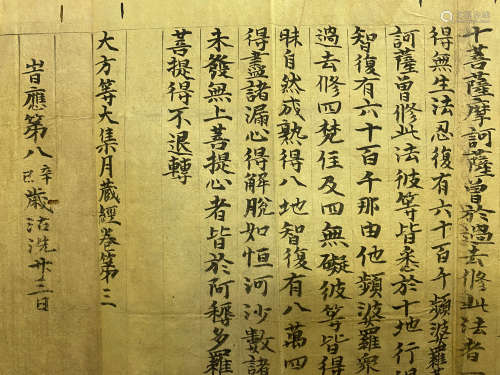 十菩薩摩訶薩曾於過去修此法者一
得無生法忍復有六十百千頻婆羅菩
訶薩曾修此法彼等皆悉於十地行得
智復有六十百千那由他頻婆羅眾
過去修四梵住及四無礙彼等皆得
昧自然成熟得八地智復有八萬四
得盡諸漏心得解脫如恒河沙數諸
未發無上菩提心者皆於阿耨多羅
菩提得不退轉
大方等大集月藏經卷第三
旹應第八辛巳歲沽洗廿三日